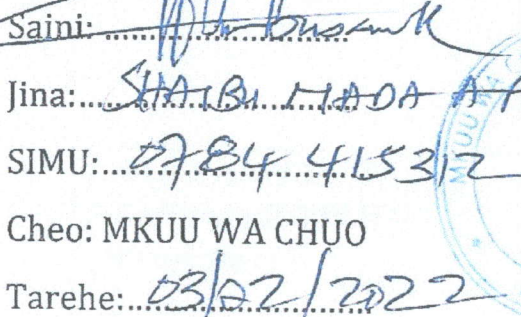 Saini:
Jina: SHAIBI MADA A
SIMU: 0784 415312
Cheo: MKUU WA CHUO
Tarehe: 03/02/2022
MKUU WA C